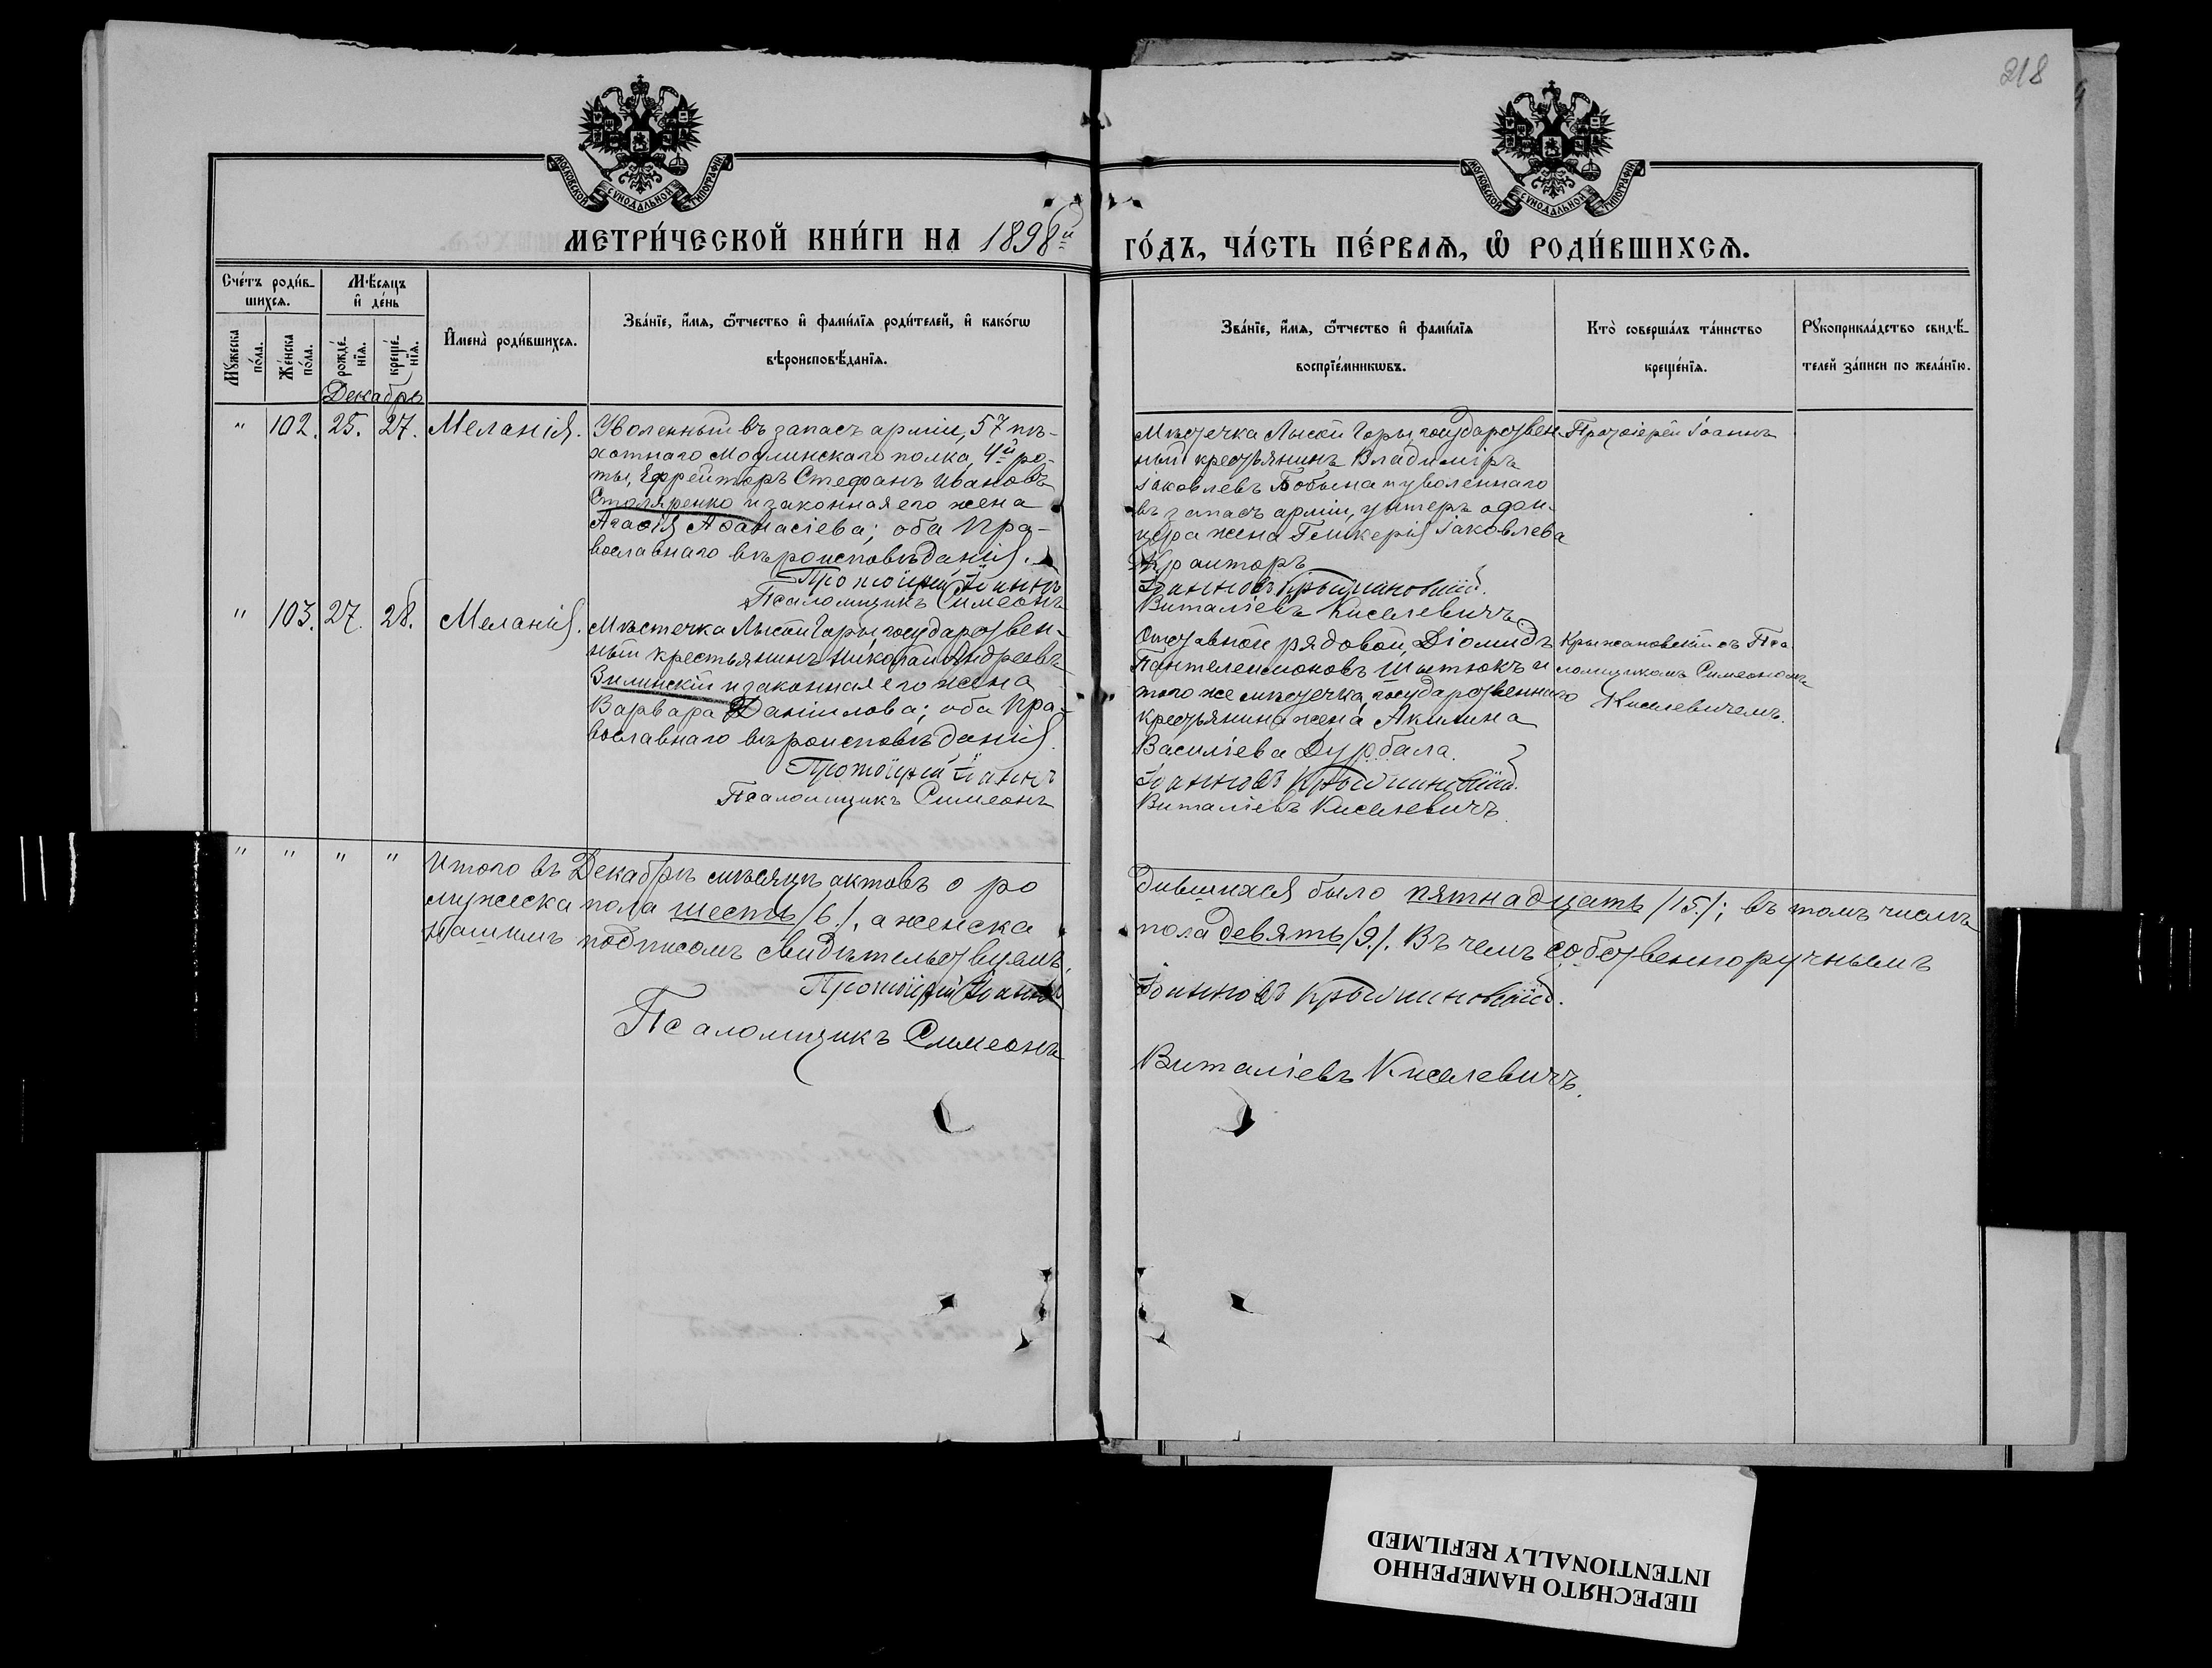 218
МОСКОВСКОЙ СѴНОДАЛЬНОЙ ТИПОГРАФІИ
МОСКОВСКОЙ СѴНОДАЛЬНОЙ ТИПОГРАФІИ
МЕТРИ́ЧЕСКОЙ КНИ́ГИ НА 1898й
ГО́ДЪ, ЧА́СТЬ ПЕ́РВАѦ, Ѡ҆ РОДИ́ВШИХСѦ.
Сче́тъ роди́в-
шихсѧ.
Мѣ́сѧцъ
и҆ де́нь
Мꙋ́жеска
по́ла.
Же́нска
по́ла.
рожде́-
нїѧ.
креще́-
нїѧ.
И҆мена̀ роди́вшихсѧ.
Зва́нїе, и҆́мѧ, ѻ҆́тчество и҆ фами́лїѧ роди́телей, и҆ како́гѡ
вѣроисповѣ́данїѧ.
Зва́нїе, и҆́мѧ, ѻ҆́тчество и҆ фами́лїѧ
воспрїе́мникѡвъ.
Кто̀ соверша́лъ та́инство
креще́нїѧ.
Рꙋкоприкла́дство свидѣ́-
телей за́писи по жела́нїю.
Декабрь
" 102. 25. 27. Меланія.
Уволенный въ запасъ арміи, 57 пѣ-
хотнаго Модлинскаго полка, 4й ро-
ты, Ефрейторъ Стефанъ Ивановъ
Столяренко и законная его жена
Агафія Аѳанасіева; оба Пра-
вославнаго вѣроисповѣданія.
Протоіерей Іоаннъ
Псаломщикъ Симеонъ
Мѣстечка Лысой Горы государствен-
ный крестьянинъ Владиміръ
Іаковлевъ Бобына и уволеннаго
въ запасъ арміи, унтеръ офи-
цера жена Гликерія Іаковлева
Іоанновъ Крыжановскій.
Виталіевъ Киселевичъ
Протоіерей Іоаннъ
" 103. 27. 28. Меланія.
Мѣстечка Лысой Горы, государствен-
ный крестьянинъ Николай Андреевъ
Зилинскій и законная его жена
Варвара Даніилова; оба Пра-
вославнаго вѣроисповѣданія.
Протоіерей Іоаннъ
Псаломщикъ Симеонъ
Отставной рядовой, Діомидъ
Пантелеимоновъ Шытюкъ и
того же мѣстечка, государственнаго
крестьянина жена Акилина
Василіева Дурбала.
Іоанновъ Крыжановскій.
Виталіевъ Киселевичъ.
Крыжановскій съ Пса
ломщикомъ Симеономъ
Киселевичемъ.
" " " "
Итого въ Декабрѣ мѣсяцѣ актовъ о ро
дившихся было пятнадцать /15./; въ томъ числѣ
мужеска пола шесть /6./, а женска
пола девять /9./. Въ чемъ собственноручнымъ
нашимъ подписомъ свидѣтельствуемъ,
Протоіерей Іоаннъ
Іоанновъ Крыжановскій.
Псаломщикъ Симеонъ
Виталіевъ Киселевичъ.
ПЕРЕСНЯТО НАМЕРЕННО
INTENTIONALLY REFILMED